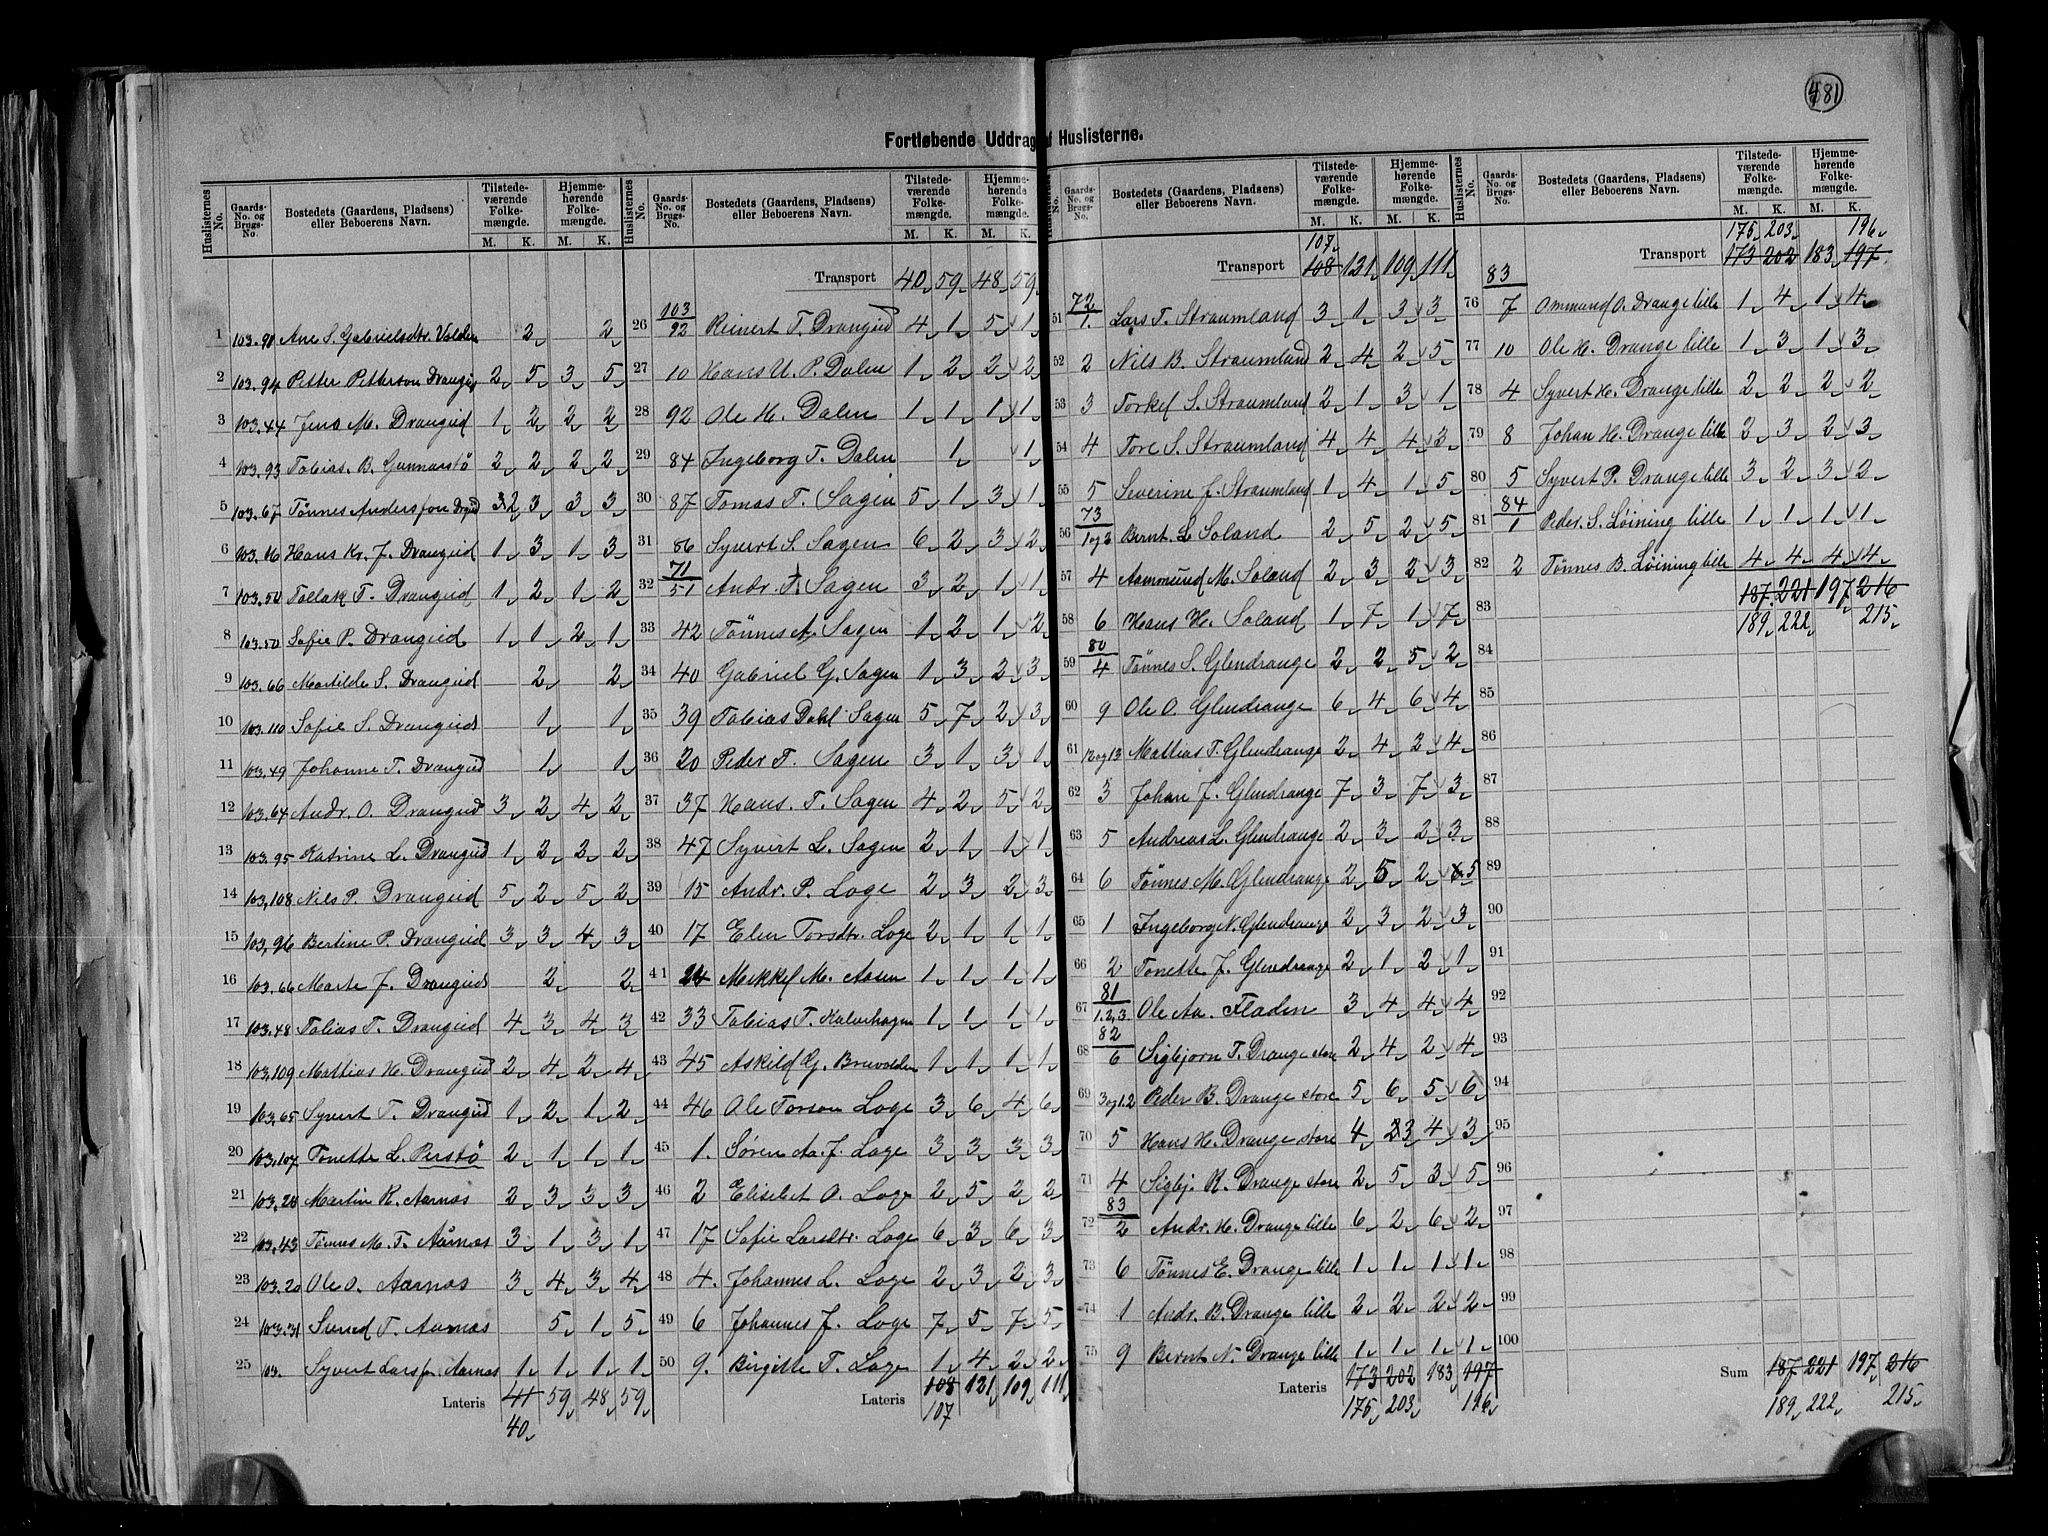 481
Fortløbende Uddrag af Huslisterne.
Huslisternes No. | Gaards-No. og Brugs-No. | Bostedets (Gaardens, Pladsens) eller Beboerens Navn. | Tilstedeværende Folkemængde. M. K. | Hjemmehørende Folkemængde. M. K.
1 103.91 Ane S. Gabrielsdtr. Valden 2 2
2 103.94 Petter Petterson Drangeid 2 5 3 5
3 103.44 Jens M. Drangeid 1 2 2 2
4 103.93 Tobias B. Gunnarstø 2 2 2 2
5 103.67 Tønnes Anderssson 2 3 3 3
6 103.16 Hans Kr. J. Drangeid 1 3 1 3
7 103.50 Tollak T. Drangeid 1 2 1 2
8 103.50 Sofie P. Drangeid 1 1 2 1
9 103.66 Martilde S. Drangeid 2 2
10 103.110 Sofie S. Drangeid 1 1
11 103.49 Johanne T. Drangeid 1 1
12 103.64 Andr. O. Drangeid 3 2 4 2
13 103.95 Katrine L. Drangeid 1 2 2 2
14 103.108 Nils P. Drangeid 5 2 5 2
15 103.96 Bertine P. Drangeid 3 3 4 3
16 103.66 Marte J. Drangeid 2 2
17 103.48 Tobias T. Drangeid 4 3 4 3
18 103.109 Mattias H. Drangeid 2 4 2 4
19 103.65 Syvert T. Drangeid 1 2 1 2
20 103.107 Tonette L. Perstø 2 1 1 1
21 103.28 Martin K. Aarnæs 2 3 3 3
22 103.43 Tønnes M. T. Aarnæs 3 1 3 1
23 103.20 Ole O. Aarnæs 3 4 3 4
24 103.31 T. Aarnæs 5 1 5
25 103. Syvert Larss. Aarnæs 1 1 1 1
Lateris 41 59 48 59
40
Transport 40 59 48 59
26 103/92 Reinert T. Drangeid 4 1 5 1
27 10 Hans U. P. Dalen 1 2 2 2
28 92 Ole H. Dalen 1 1 1 1
29 84 Ingeborg T. Dalen 1 1
30 87 Tomas T. Sagen 5 1 3 1
31 86 Syvert S. Sagen 6 2 3 2
32 71/51 Andr. T. Sagen 3 2 1 1
33 42 Tønnes A. Sagen 1 2 1 2
34 40 Gabriel G. Sagen 1 3 2 3
35 39 Tobias Dahl Sagen 5 7 2 3
36 20 Peder T. Sagen 3 1 3 1
37 37 Hans T. Sagen 4 2 5 2
38 47 Syvert L. Sagen 2 1 1 1
39 15 Andr. P. Loge 2 3 2 3
40 17 Elen Torsdtr. Loge 2 1 1 1
41 24 Mikkel M. Aasen 1 1 1 1
42 33 Tobias T. Kalvehagen 1 1 1 1
43 45 Askild G. Bruvolden 1 1 1 1
44 46 Ole Torson Loge 3 6 4 6
45 1. Søren Aa. J. Loge 3 3 3 3
46 2 Elisebet O. Loge 2 5 2 2
47 17 Sofie Larsdtr. Loge 6 3 6 3
48 4. Johannes L. Loge 2 3 2 3
49 6 Johannes J. Loge 7 5 7 5
50 9. Birgitte T. Loge 1 4 2 2
Lateris 108 121 109 111
107
107
Transport 108 121 109 111
51 72/1. Lars T. Straumland 3 1 3 3
52 2 Nils B. Straumland 2 4 2 5
53 3 Torkel S. Straumland 2 1 3 1
54 4 Tore S. Straumland 4 4 4 3
55 5 Severine J. Straumland 1 4 1 5
56 73/1og3 Bernt. L. Soland 2 5 2 5
57 4 Aammund M. Soland 2 3 2 3
58 6 Hans H. Soland 1 7 1 7
59 80/4 Tønnes S. Glendrange 2 2 5 2
60 9 Ole O. Glendrange 6 4 6 4
61 12og13 Mattias T. Glendrange 2 4 2 4
62 3 Johan J. Glendrange 7 3 7 3
63 5 Andreas L. Glendrange 2 3 2 3
64 6 Tønnes M. Glendrange 2 5 2 5
65 1 Ingeborg N. Glendrange 2 3 2 3
66 2 Tonette J. Glendrange 2 1 2 1
67 81/1.2,3 Ole Aa. Fladen 3 4 4 4
68 82/6 Sigbjørn T. Drange store 2 4 2 4
69 3og1.2 Peder B. Drange store 5 6 5 6
70 5 Hans H. Drange store 4 3 4 3
71 4 Sigbj. R. Drange store 2 5 3 5
72 83/2 Andr. H. Drange lille 6 2 6 2
73 6 Tønnes E. Drange lille 1 1 1 1
74 1 Andr. B. Drange lille 2 2 2 2
75 9 Bernt N. Drange lille 1 1 1 1
Lateris 173 202 183 197
175 203 196
175 203 196
Transport 173 202 183 197
76 83/7 Ommund O. Drange lille 1 4 1 4
77 10 Ole H. Drange lille 1 3 1 3
78 4 Syvert H. Drange lille 2 2 2 2
79 8 Johan H. Drange lille 2 3 2 3
80 5 Syvert P. Drange lille 3 2 3 2
81 84/1 Peder S. Løining lille 1 1 1 1
82 2 Tønnes B. Løining lille 4 4 4 4
83 187 221 197 216
189 222 215
84
85
86
87
88
89
90
91
92
93
94
95
96
97
98
99
100
Sum 187 221 197 216
189 222 215